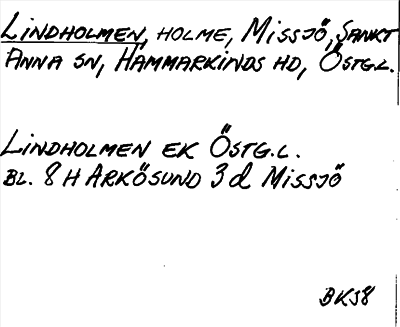 LINDHOLMEN, HOLME, MISSJÖ, SANKT
ANNA SN, HAMMARKINDS HD, ÖSTG.L.
LINDHOLMEN EK ÖSTG.L.
BL. 8 H ARKÖSUND 3d MISSJÖ
BKS8